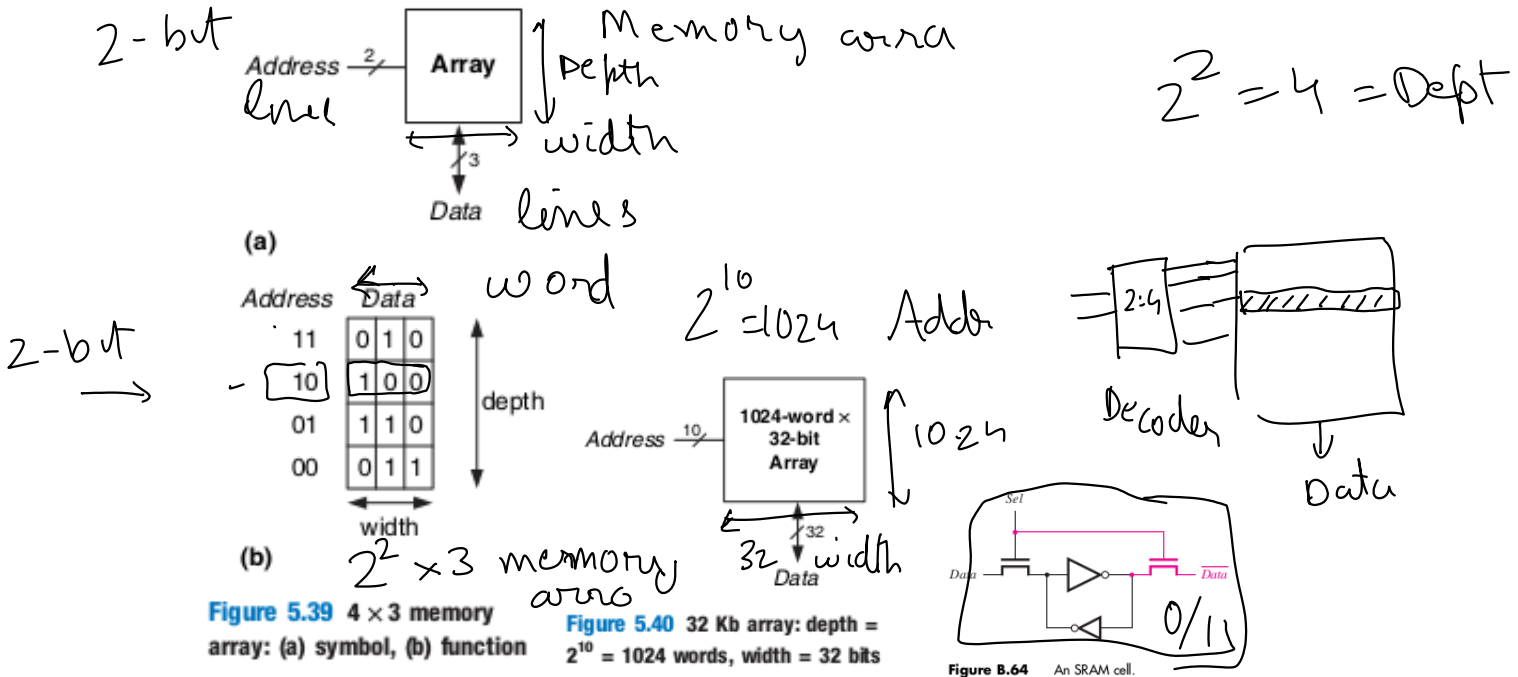 2-but
Address 2 Array
line
Depth
Memory arra
2² = 4 = Dept
width
3
Data lines
(a)
word
Address Data
2-but
11 0 1 0
10 1 0 0
01 1 1 0
00 0 1 1
depth
width
(b)
2² × 3 memory
arro
Figure 5.39 4 × 3 memory
array: (a) symbol, (b) function
2¹⁰ =1024 Addr
Address 10 1024-word ×
32-bit
Array
1024
32
32 width
Data
Figure 5.40 32 Kb array: depth =
2¹⁰ = 1024 words, width = 32 bits
2:4
Decoder
Data
Sel
Data
Data
0/1
Figure B.64 An SRAM cell.